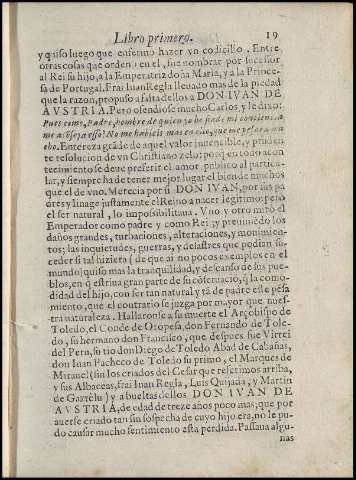 Libro primero. 19
y quiso luego que enfermo hazer vn codicilio. Entre
otras cosas que ordenò en el, fue nombrar por sucessor
al Rei su hijo, a la Emperatriz doña Maria, y a la Prince-
sa de Portugal. Frai Iuan Regla lleuado mas de la piedad
que la razon, propuso a falta dellos a DON IVAN DE
AVSTRIA. Pero ofendiose mucho Carlos, y le dixo:
Pues como, Padre, hombre de quien yo he fiado mi conciencia
me aconseja esso? No me hableis mas en ello, que me pesarà mu
cho. Entereza grãde de aquel valor inuencible, y pruden
te resolucion de vn Christiano zelo: porq en todo acon
tecimiento se deue preferir el amor publico al particu-
lar, y siempre ha de tener mejor lugar el bien de muchos
que el de vno. Merecia por si DON IVAN, por sus pa
dres y linage justamente el Reino a nacer legitimo: pero
el ser natural, lo impossibilitaua. Vno y otro mirò el
Emperador como padre y como Rei; y preuiniẽdo los
daños grandes, turbaciones, alteraciones, y mouimien-
tos; las inquietudes, guerras, y desastres que podian su-
ceder si tal hiziera (de que ai no pocos exemplos en el
mundo) quiso mas la tranquilidad, y descanso de sus pue-
blos, en q̃ estriua gran parte de su cõseruaciõ, q̃ la como-
didad del hijo, con ser tan natural y tã de padre este pẽsa
miento, que el contrario se juzga por mayor que nues-
tra naturaleza. Hallaronse a su muerte el Arçobispo de
Toledo, el Conde de Oropesa, don Fernando de Tole-
do, su hermano don Francisco, que despues fue Virrei
del Peru, su tio don Diego de Toledo Abad de Cabañas,
don Iuan Pacheco de Toledo su primo, el Marques de
Mirauel (sin los criados del Cesar que referimos arriba,
y sus Albaceas, frai Iuan Regla, Luis Quijada, y Martin
de Gaztelu) y a bueltas dellos DON IVAN DE
AVSTRIA, de edad de treze años poco mas; que por
auerse criado tan sin sospecha de cuyo hijo era, no le pu-
do causar mucho sentimiento esta perdida. Passaua algu-
nas